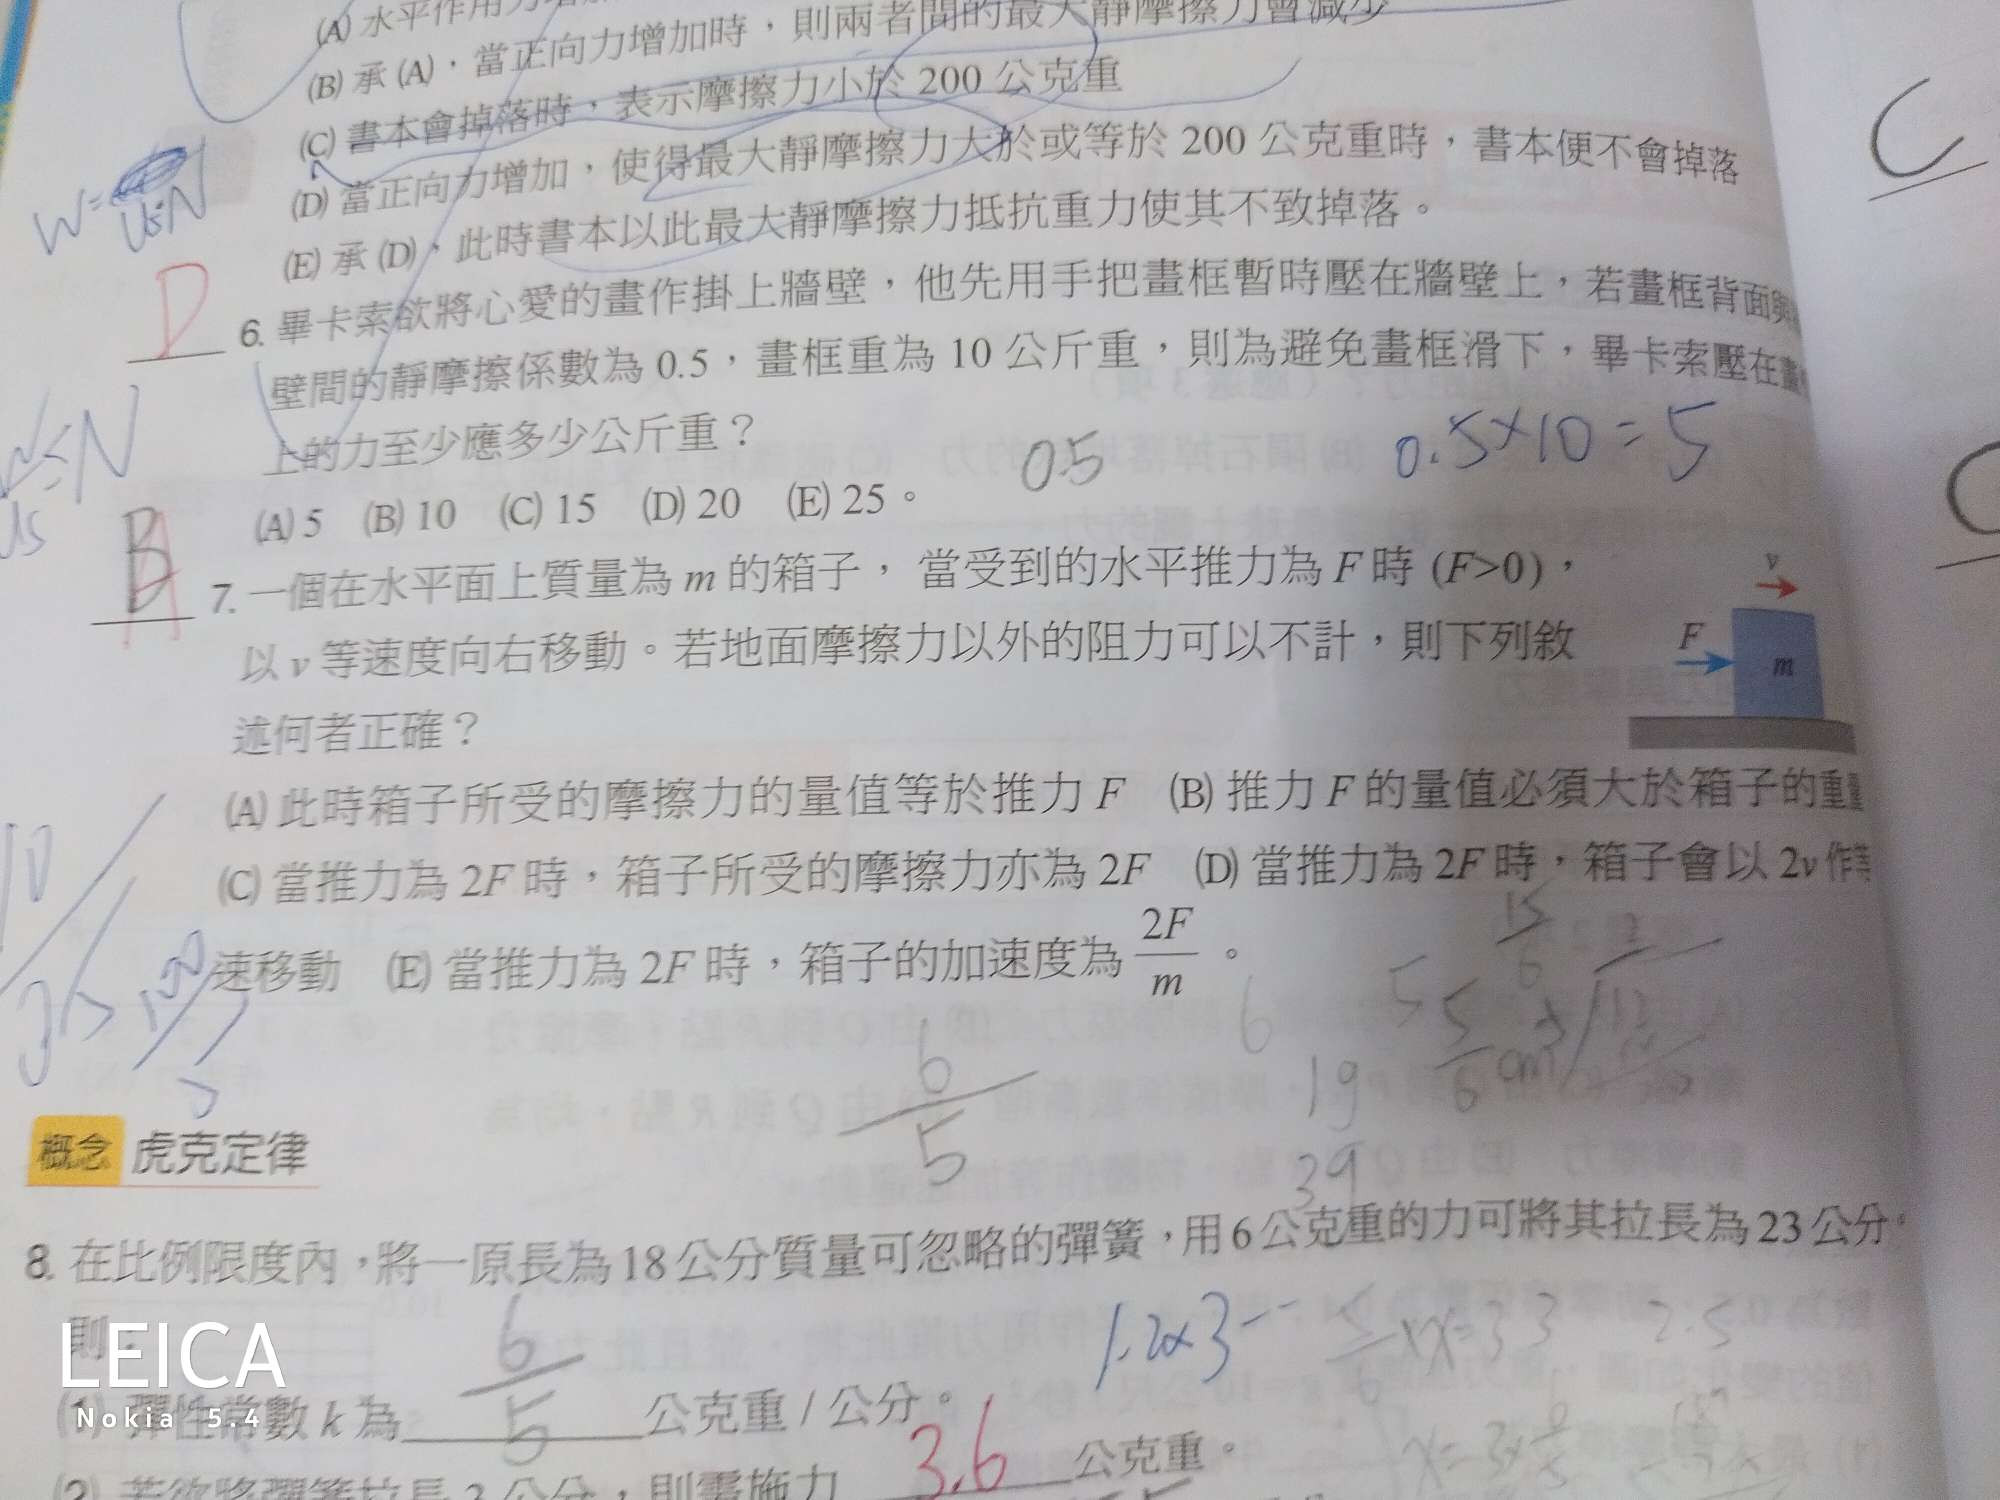 (A) 水平作用力增加
(B) 承 (A)，當正向力增加時，則兩者間的最大靜摩擦力會減少
(C) 書本會掉落時，表示摩擦力小於 200 公克重
(D) 當正向力增加，使得最大靜摩擦力大於或等於 200 公克重時，書本便不會掉落
(E) 承 (D)，此時書本以此最大靜摩擦力抵抗重力使其不致掉落。
C
W= Us·N
D 6. 畢卡索欲將心愛的畫作掛上牆壁，他先用手把畫框暫時壓在牆壁上，若畫框背面與
壁間的靜摩擦係數為 0.5，畫框重為 10 公斤重，則為避免畫框滑下，畢卡索壓在畫
上的力至少應多少公斤重？
0.5
0.5×10=5
(A) 5 (B) 10 (C) 15 (D) 20 (E) 25。
B A 7. 一個在水平面上質量為 m 的箱子，當受到的水平推力為 F 時 (F>0)，
以 v 等速度向右移動。若地面摩擦力以外的阻力可以不計，則下列敘
述何者正確？
v
F
m
(A) 此時箱子所受的摩擦力的量值等於推力 F (B) 推力 F 的量值必須大於箱子的重量
(C) 當推力為 2F 時，箱子所受的摩擦力亦為 2F (D) 當推力為 2F 時，箱子會以 2v 作等
速移動 (E) 當推力為 2F 時，箱子的加速度為 2F/m。
6
5
6
19
39
概念 虎克定律
8. 在比例限度內，將一原長為 18 公分質量可忽略的彈簧，用 6 公克重的力可將其拉長為 23 公分，
則：
1.2×3=
2.5
(1) 彈性常數 k 為 6/5 公克重 / 公分。
(2) 若欲將彈簧拉長 3 公分，則需施力 3.6 公克重。
LEICA
Nokia 5.4